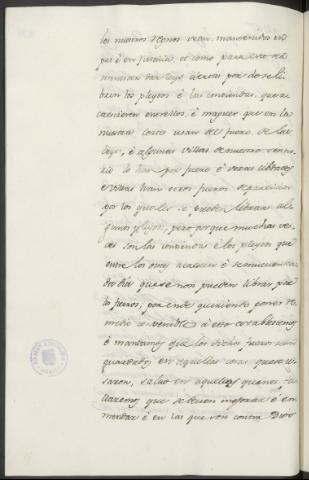 los nuestros Regnos sean mantenidos en
paz é en justicia, et como para esto sea
menester dar leys ciertas por do se li-
bren los pleytos é las contiendas, que a-
caescieren entre ellos, é maguer que en la
nuestra corte usan del fuero de las
leys, é algunas villas de nuestro senno-
rio lo han por fuero é otras cibdades
é villas han otros fueros departidos
por los quales se pueden librar al-
gunos pleytos, pero porque muchas ve-
ces son las contiendas é los pleytos que
entre los omes acaescen é se mueven de ca-
da dia que se non pueden librar por
los fueros, por ende queriendo poner re-
medio convenible á esto establecemos
é mandamos que los dichos fueros sean
guardados en aquellas cosas que se u-
saron, salvo en aquellas que nos fa-
llaremos que se deven mejorar é en-
mendar é en las que son contra Dios